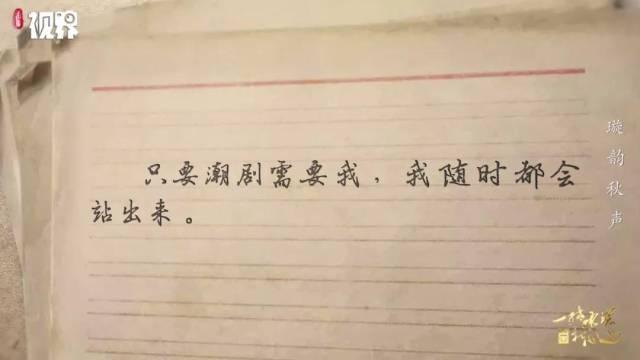 视界
只要潮剧需要我，我随时都会
站出来。
璇韵秋声